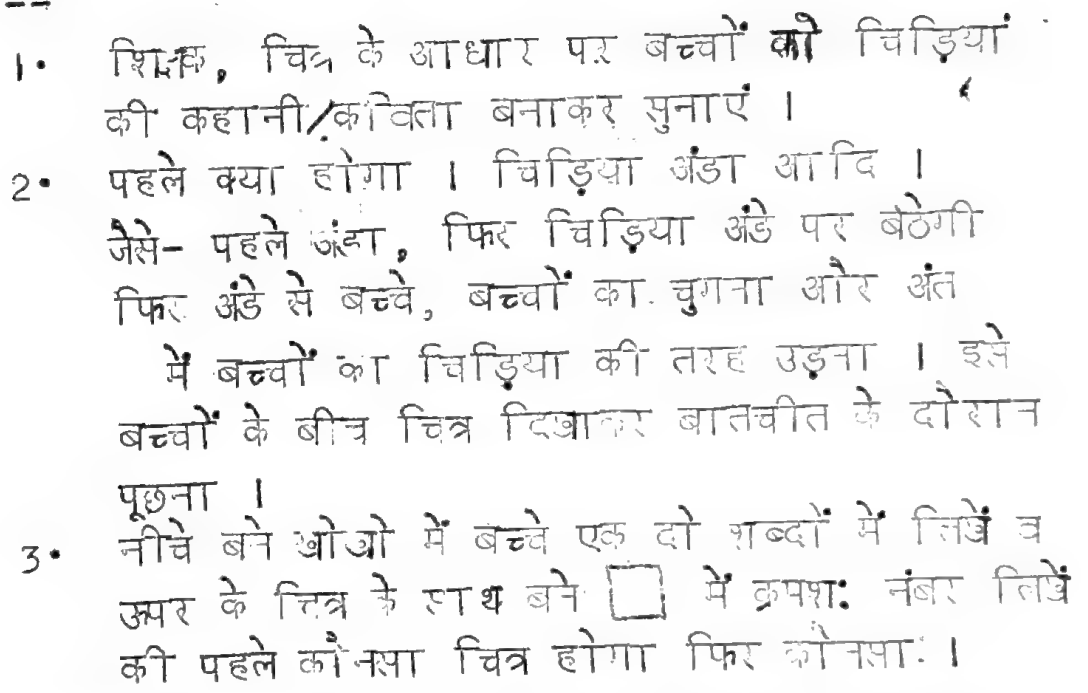 1. शिक्षक, चित्र के आधार पर बच्चों को चिड़ियां
की कहानी/कविता बनाकर सुनाएं ।
2. पहले क्या होगा । चिड़िया अंडा आदि ।
जैसे- पहले अंडा, फिर चिड़िया अंडे पर बैठेगी
फिर अंडे से बच्चे, बच्चों का चुगना और अंत
में बच्चों का चिड़िया की तरह उड़ना । इसे
बच्चों के बीच चित्र दिखाकर बातचीत के दौरान
पूछना ।
3. नीचे बने में बच्चे एक दो शब्दों में लिखें व
ऊपर के चित्र के साथ बने में क्रमश: नंबर लिखें
की पहले कौनसा चित्र होगा फिर कौनसा ।